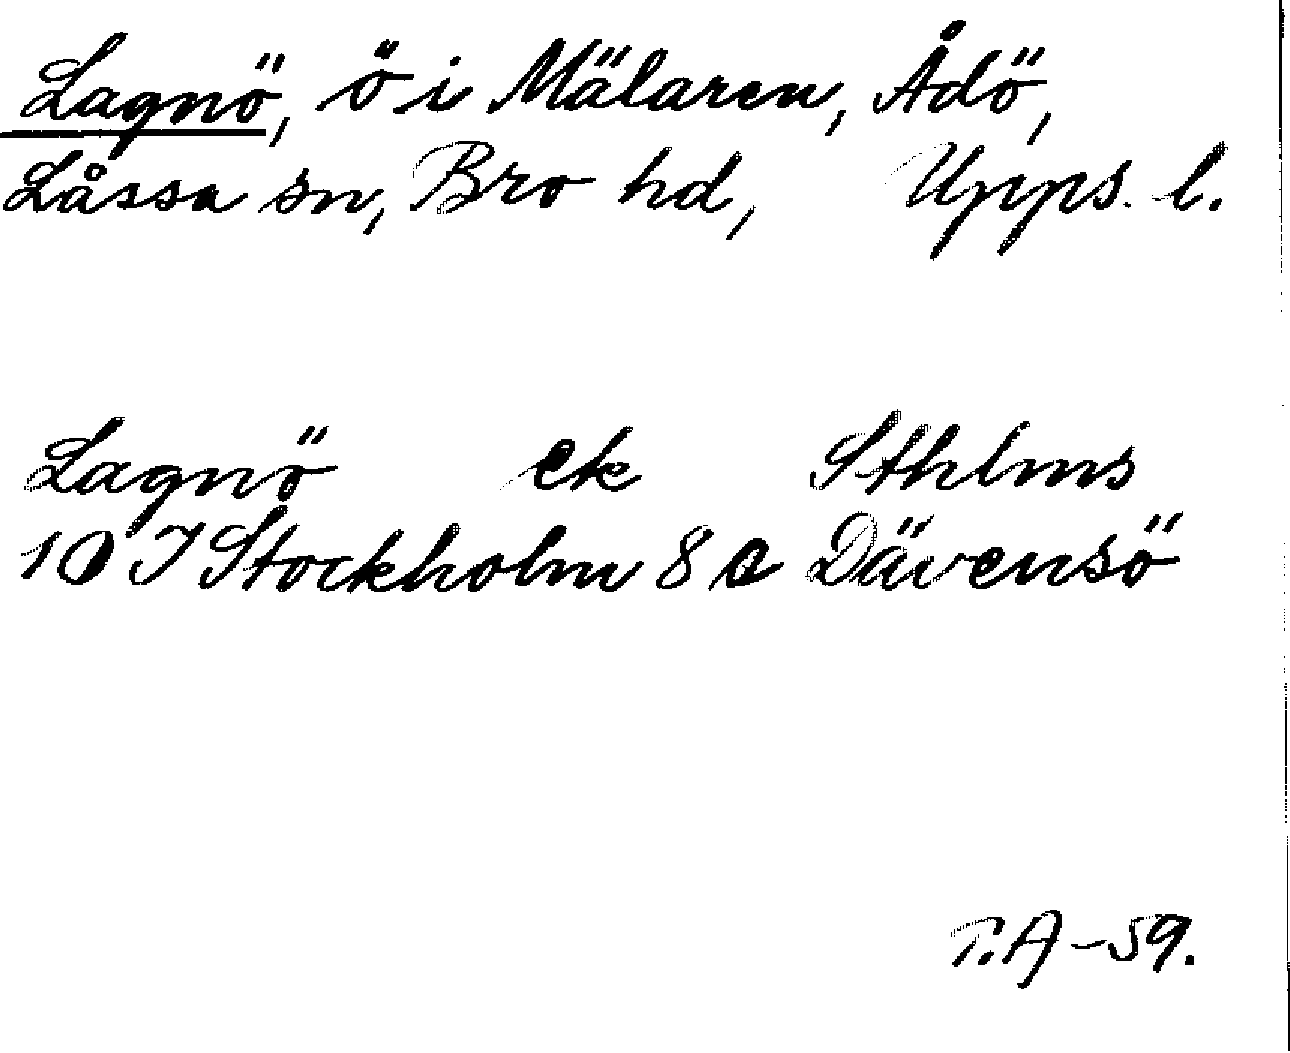 Lagnö, ö i Mälaren, Ådö,
Låssa sn, Bro hd, Upps. l.
Lagnö ek Sthlms
10 I Stockholm 8 a Dävensö
T.A -59.